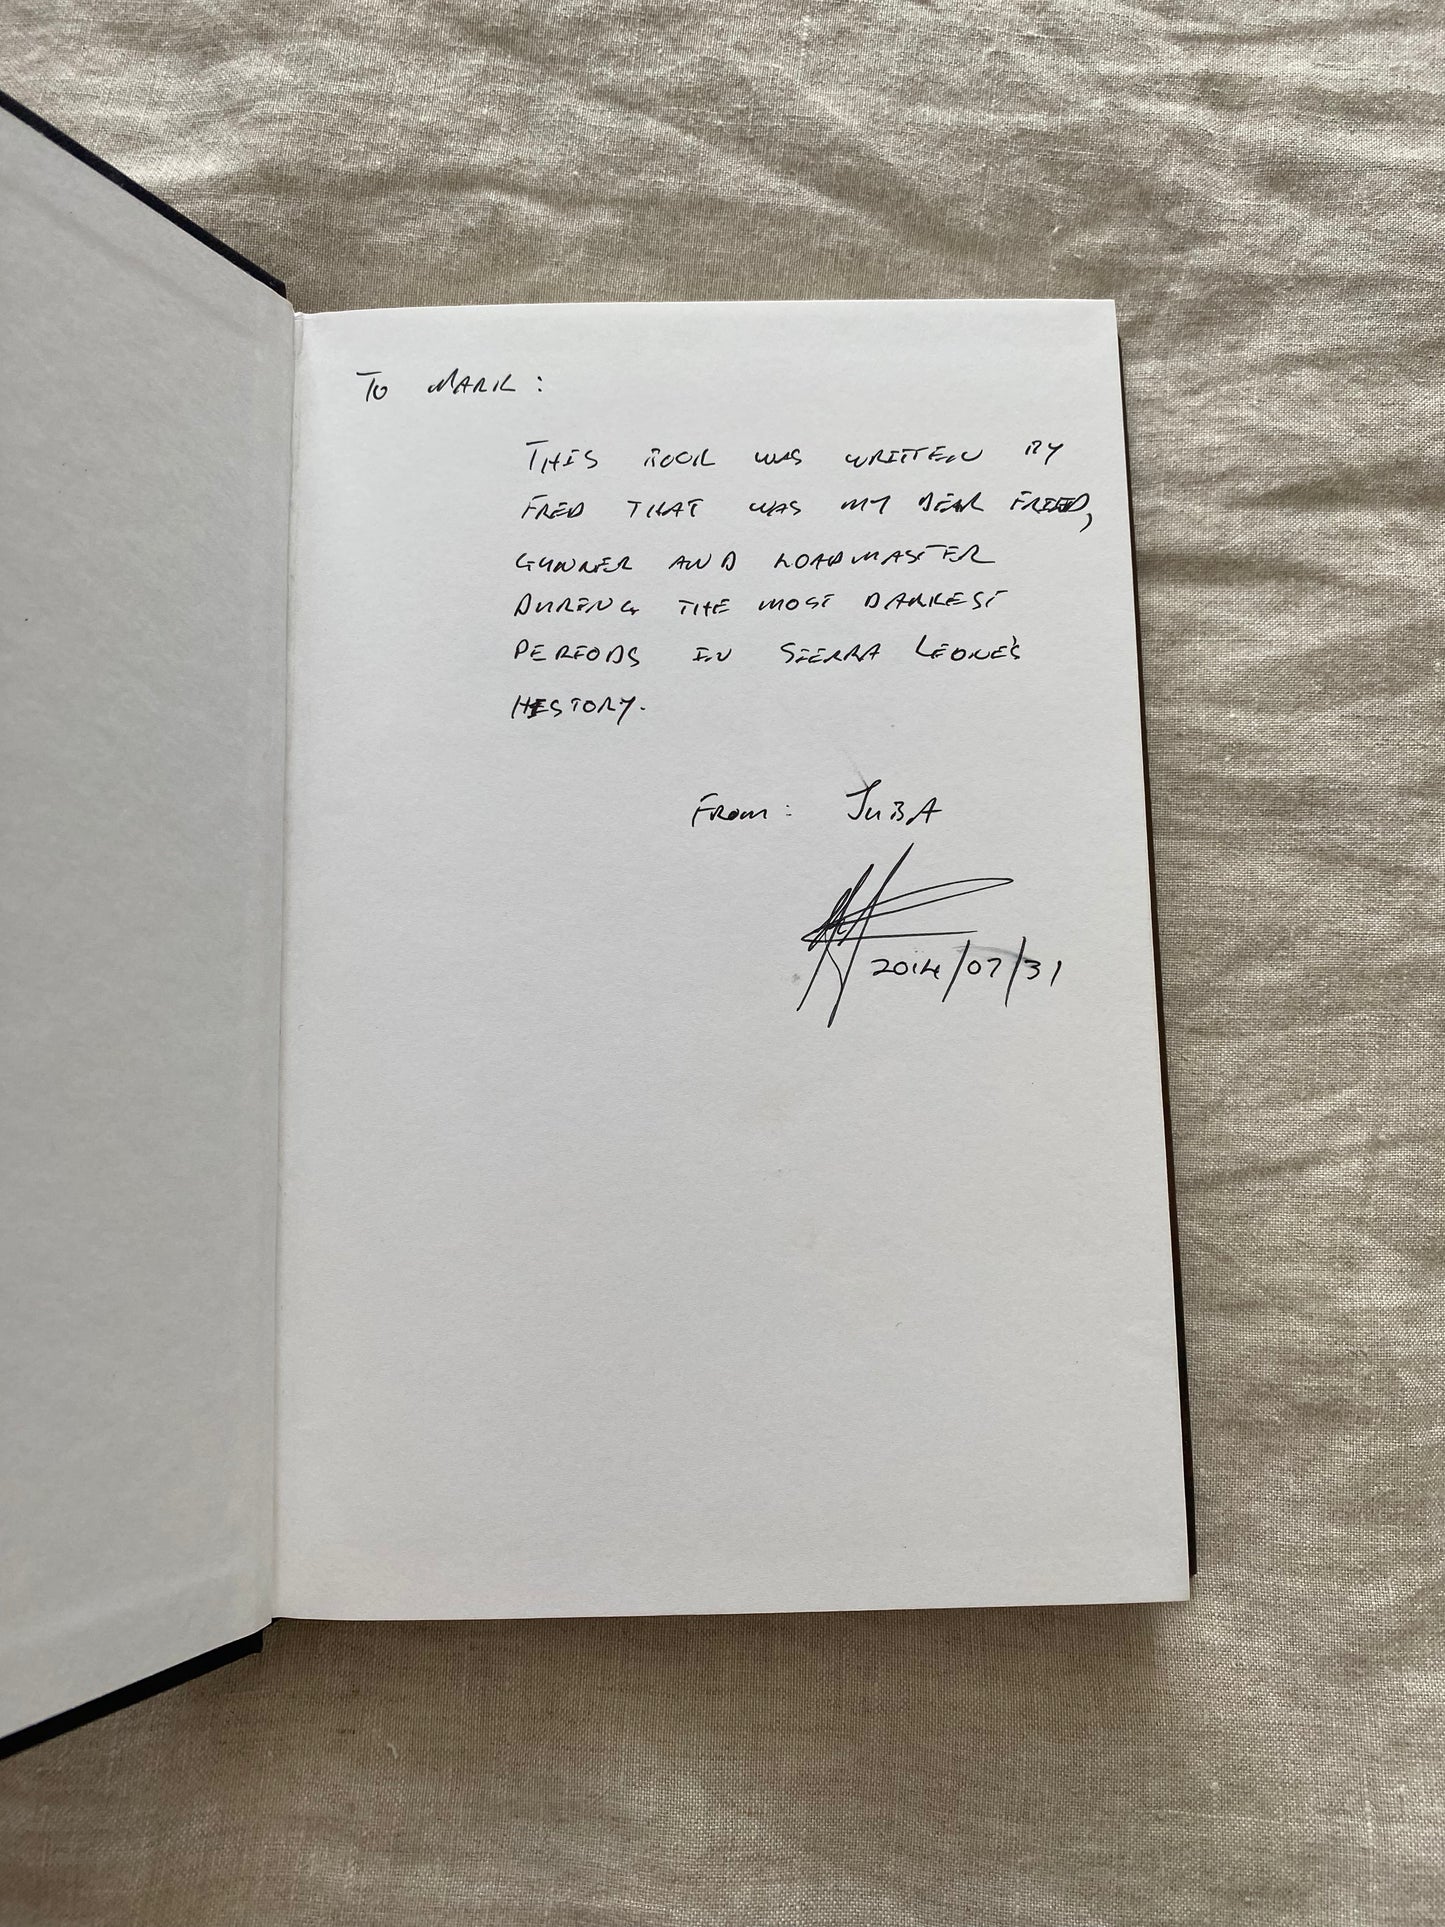 TO MARK :
THIS BOOK WAS WRITTEN BY
FRED THAT WAS MY DEAR FRIEND,
GUNNER AND LOADMASTER
DURING THE MOST DARKEST
PERIODS IN SIERRA LEONE'S
HISTORY.
FROM : JUBA
2014/07/31